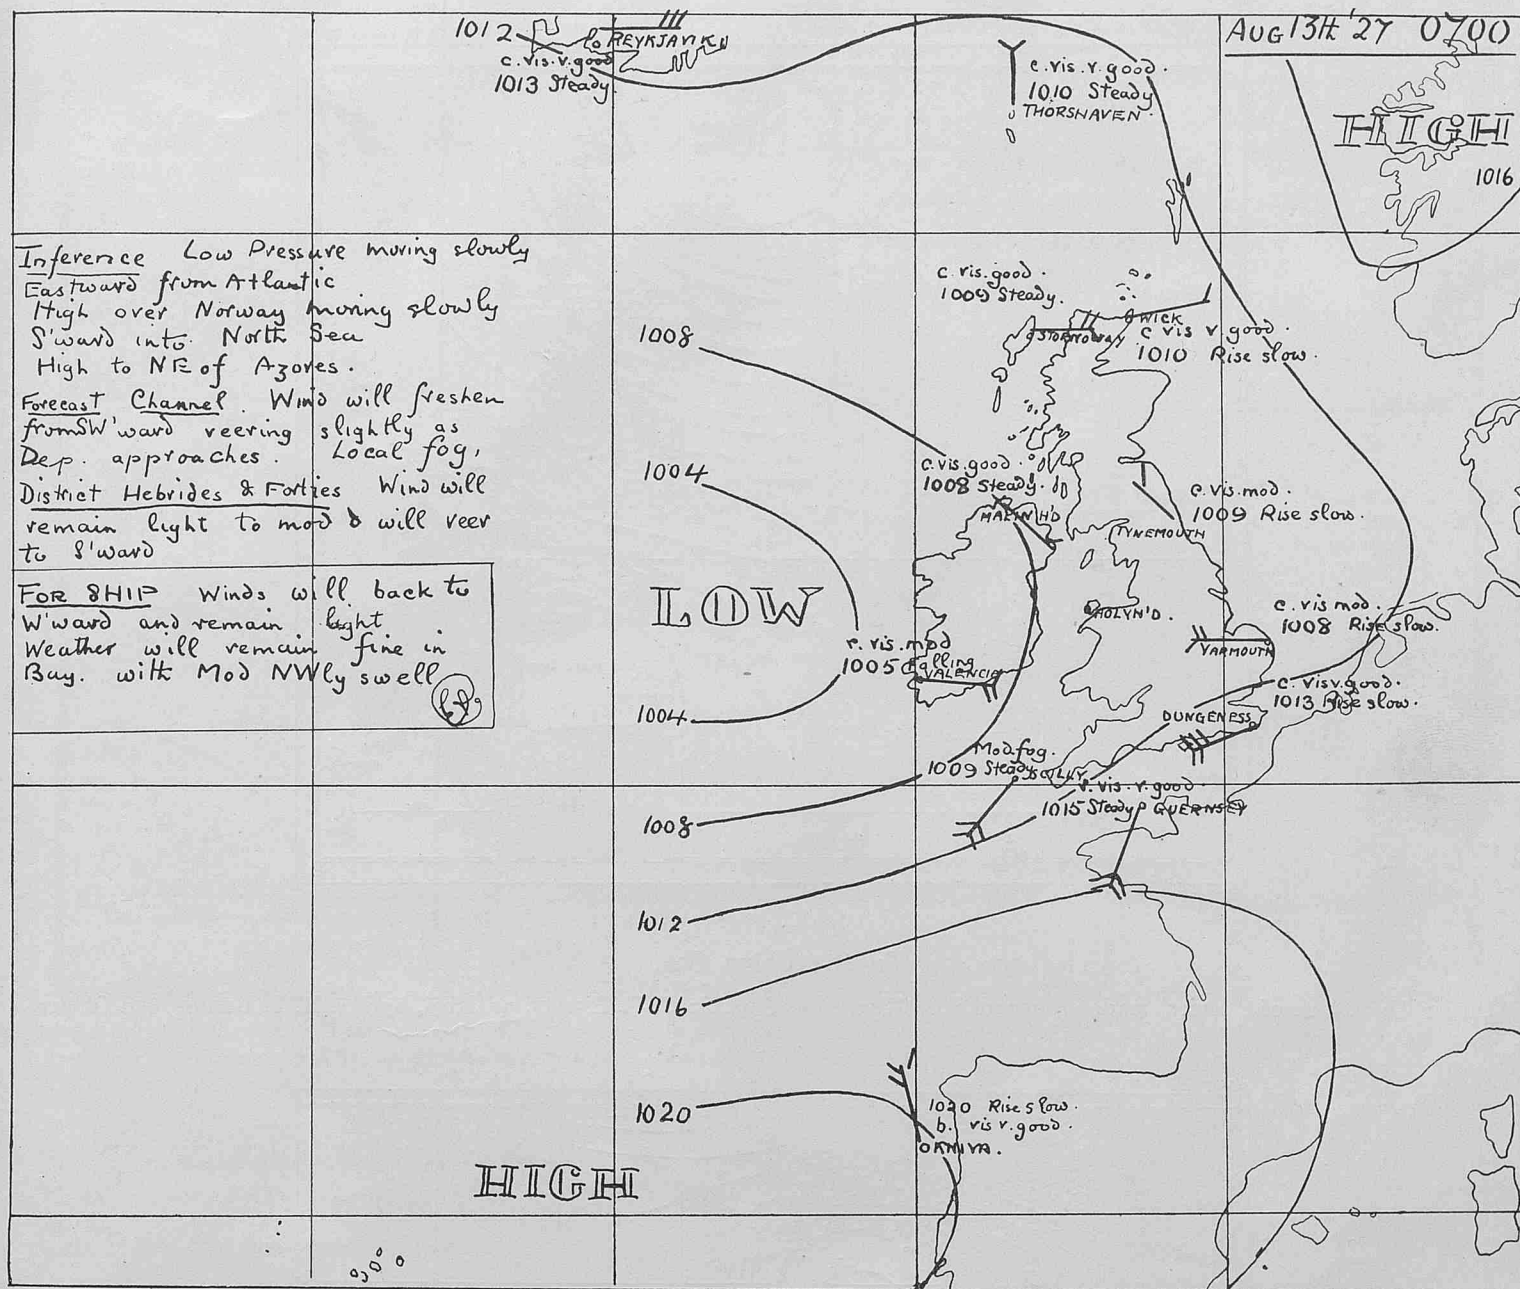 AUG 13TH '27 0700
1012
REYKJAVIK
c. vis. v. good
1013 Steady.
c. vis. v. good.
1010 Steady
THORSHAVEN.
HIGH
1016
Inference Low Pressure moving slowly
Eastward from Atlantic
High over Norway moving slowly
S'ward into North Sea
High to NE of Azores.
Forecast Channel. Wind will freshen
from SW'ward veering slightly as
Dep. approaches. Local fog.
District Hebrides & Forties Wind will
remain light to mod & will veer
to S'ward
FOR SHIP Winds will back to
W'ward and remain light
Weather will remain fine in
Bay. with Mod NWly swell
c. vis. good.
1009 Steady.
STORNOWAY
WICK
c vis v. good.
1010 Rise slow.
1008
1004
c. vis. good.
1008 Steady.
MALIN H'D
c. vis. mod.
1009 Rise slow.
TYNEMOUTH
LOW
HOLYH'D.
c. vis mod.
1008 Rise slow.
YARMOUTH
c. vis. mod
1005 Falling
VALENCIA
1004
c. vis v. good.
1013 Rise slow.
DUNGENESS
Mod. fog.
1009 Steady
SCILLY
1008
vis. v. good
1015 Steady
GUERNSEY
1012
1016
1020
1020 Rise slow.
b. vis v. good.
HIGH